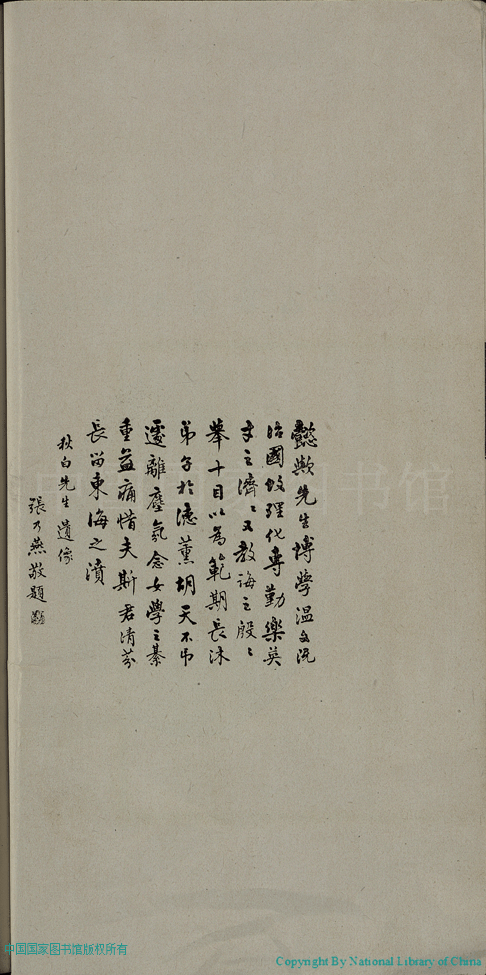 懿歟先生博學溫文既
治國故理化專勤樂英
才之濟濟又教誨之殷殷
舉十目以為範期長沐
弟子於德薰胡天不弔
遽離塵氛念女學之綦
重益痛惜夫斯君清芬
長留東海之濆
秋白先生遺像
張乃燕敬題
中国国家图书馆版权所有
Copyright By National Library of China